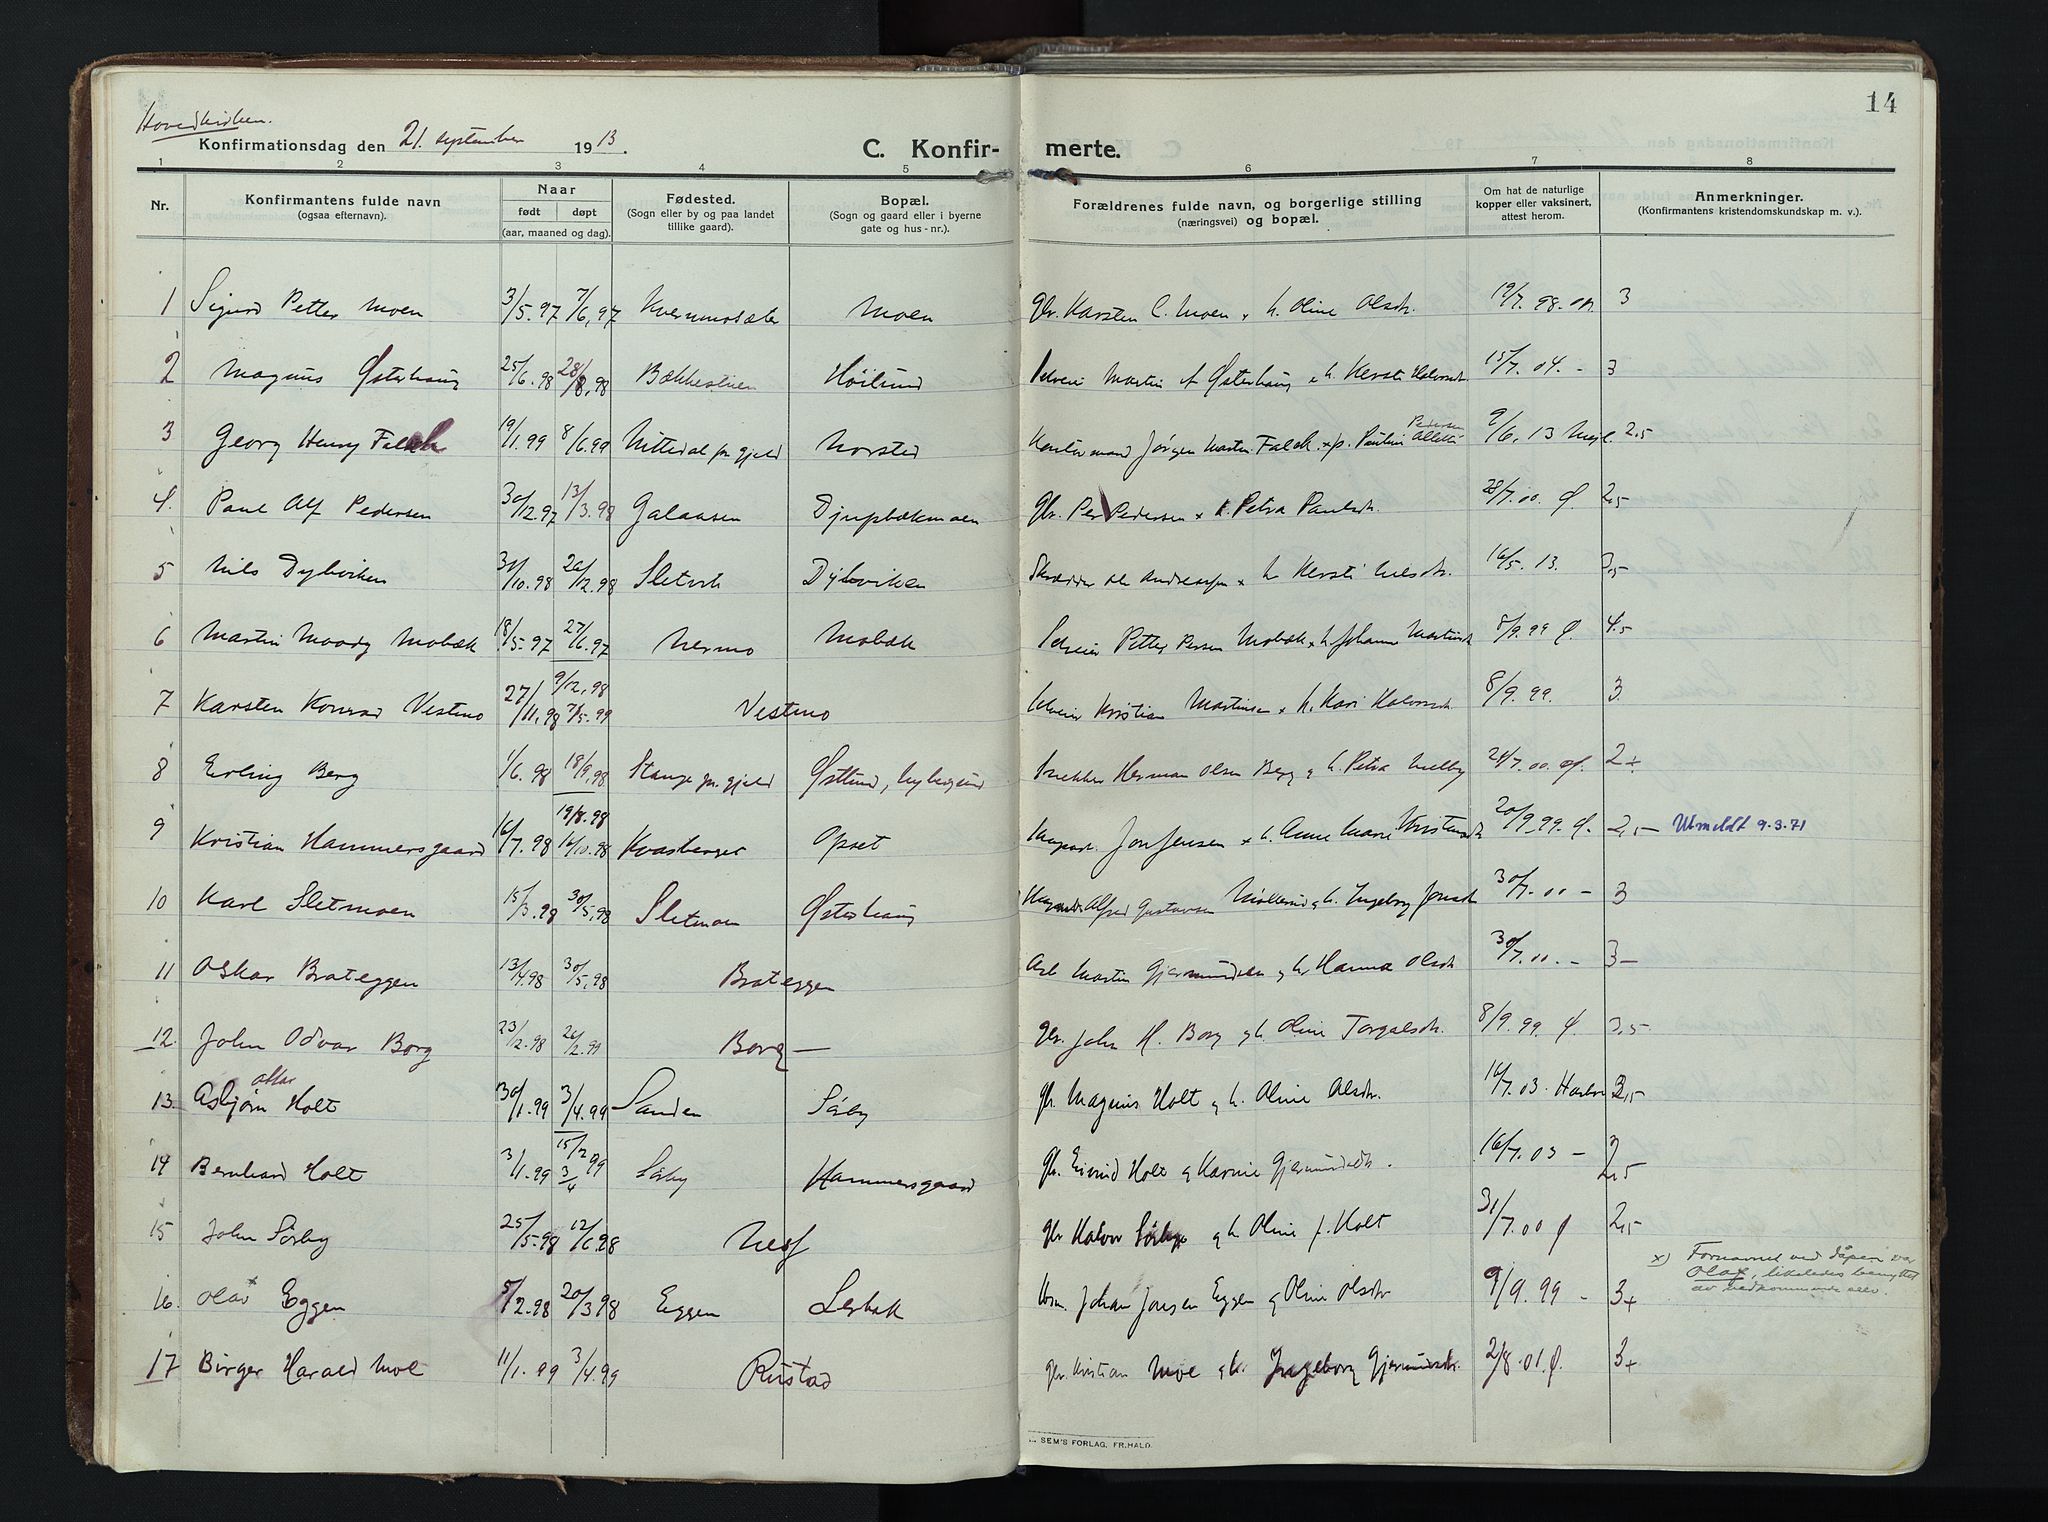 14
Hovedkirken.
Konfirmationsdag den 21. september 1913.
C. Konfir- merte.
1 2 3 4 5 6 7 8
Nr. Konfirmantens fulde navn (ogsaa efternavn). Naar født døpt (aar, maaned og dag). Fødested. (Sogn eller by og paa landet tillike gaard). Bopæl. (Sogn og gaard eller i byerne gate og hus-nr.). Forældrenes fulde navn, og borgerlige stilling (næringsvei) og bopæl. Om hat de naturlige kopper eller vaksinert, attest herom. Anmerkninger. (Konfirmantens kristendomskundskap m. v.).
1 Sigurd Petter Moen 3/5.97 7/6.97 Kvernmosæter Moen Gbr. Karsten C. Moen & h. Oline Olsdtr. 19/7.98. 3
2 Magnus Østerhaug 25/6.98 28/8.98 Bækkestuen Höilund Selveier Martin A Østerhaug & h. Kersti Halvorsdtr. 15/7.04. - 3
3 Georg Henry Falck 19/1.99 8/6.99 Nittedal pr.gjeld Norsted Jørgen Martin Falck & Pauline Alette Pedersen 9/6.13 2,5
4. Paul Alf Pedersen 30/12.97 13/3.98 Galaasen Djupbækmoen Gbr. Per Pedersen & h. Petra Paulsdtr. 28/7.00. Ø. 2,5
5 Nils Dybviken 31/10.98 26/12.98 Sletvik Dybviken Skrædder Ole Andreassen & h. Kersti Nilsdtr. 16/5.13. 3,5
6 Martin Moody Mobæk 18/5.97 27/6.97 Nermo Mobæk Selveier Petter Persen Mobæk & h. Johanne Martinsdtr. 8/9.99 Ø. 4,5
7 Karsten Konrad Vestmo 27/11.98 9/12.98 7/5.99 Vestmo Selveier Kristian Martinsen & h. Kari Halvorsdtr. 8/9.99. 3
8 Erling Berg 1/6.98 18/9.98 Stange pr.gjeld Østlund, Nybergsund Snekker Herman Olsen Berg & h. Petra Melby 24/7.00. Ø. 2+
9 Kristian Hammersgaard 16/7.98 19/8.98 16/10.98 Kvasberget Opset Jon Jensen & h. Anne Marie Kristensdtr. 20/9.99. Ø. 2,5- Utmeldt 9.3.71
10 Karl Sletmoen 15/3.98 30/5.98 Sletmoen Østerhaug Alfred Gustavsen Møllerud & h. Ingeborg Jonsdtr. 30/7.00 - 3
11 Oskar Brateggen 13/4.98 30/5.98 Brateggen Arb. Martin Gjermundsen & h. Hanna Olsdtr. 30/7.00. - 3-
12. John Odvar Borg 23/12.98 26/2.99 Borg - Gbr. John H. Borg & h. Oline Torgalsdtr. 8/9.99 Ø. 3,5
13. Asbjørn Ottar Holt 30/1.99 3/4.99 Sanden Sörby Gbr. Magnus Holt & h. Oline Olsdtr. 16/7.03. 2,5
14 Bernhard Holt 3/1.99 15/2 99 3/4 Sörby Hammersgaard Gbr. Eivind Holt & Karnie Gjermundsdtr. 16/7.03 - 2,5
15 John Sörby 25/5.98 12/6.98 Nesf Gbr. Halvor Sörby & h. Oline f. Holt 31/7.00 Ø 2,5
16. Olav x Eggen 5/2.98 20/3 98 Eggen Lerbæk Johan Jonsen Eggen & Oline Olsdtr 9/9.99 - 3+
x) Fornavnet ved dåpen var
Olaf, likeledes benyttet
av vedkommende selv.
17 Birger Harald Moe 11/1.99 3/4.99 Rustad Gbr. Kristian Moe & h. Ingeborg Gjermundsdtr. 2/8.01.Ø. 3+
SEM'S FORLAG, FR.HALD.